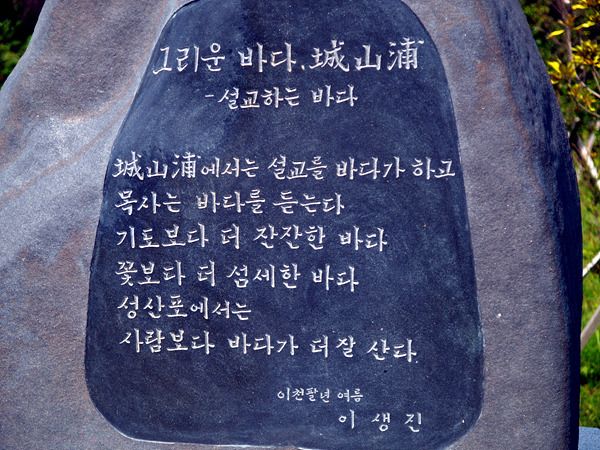 그리운 바다, 城山浦
- 설교하는 바다
城山浦에서는 설교를 바다가 하고
목사는 바다를 듣는다
기도보다 더 잔잔한 바다
꽃보다 더 섬세한 바다
성산포에서는
사람보다 바다가 더 잘 산다.
이천팔년 여름
이 생 진